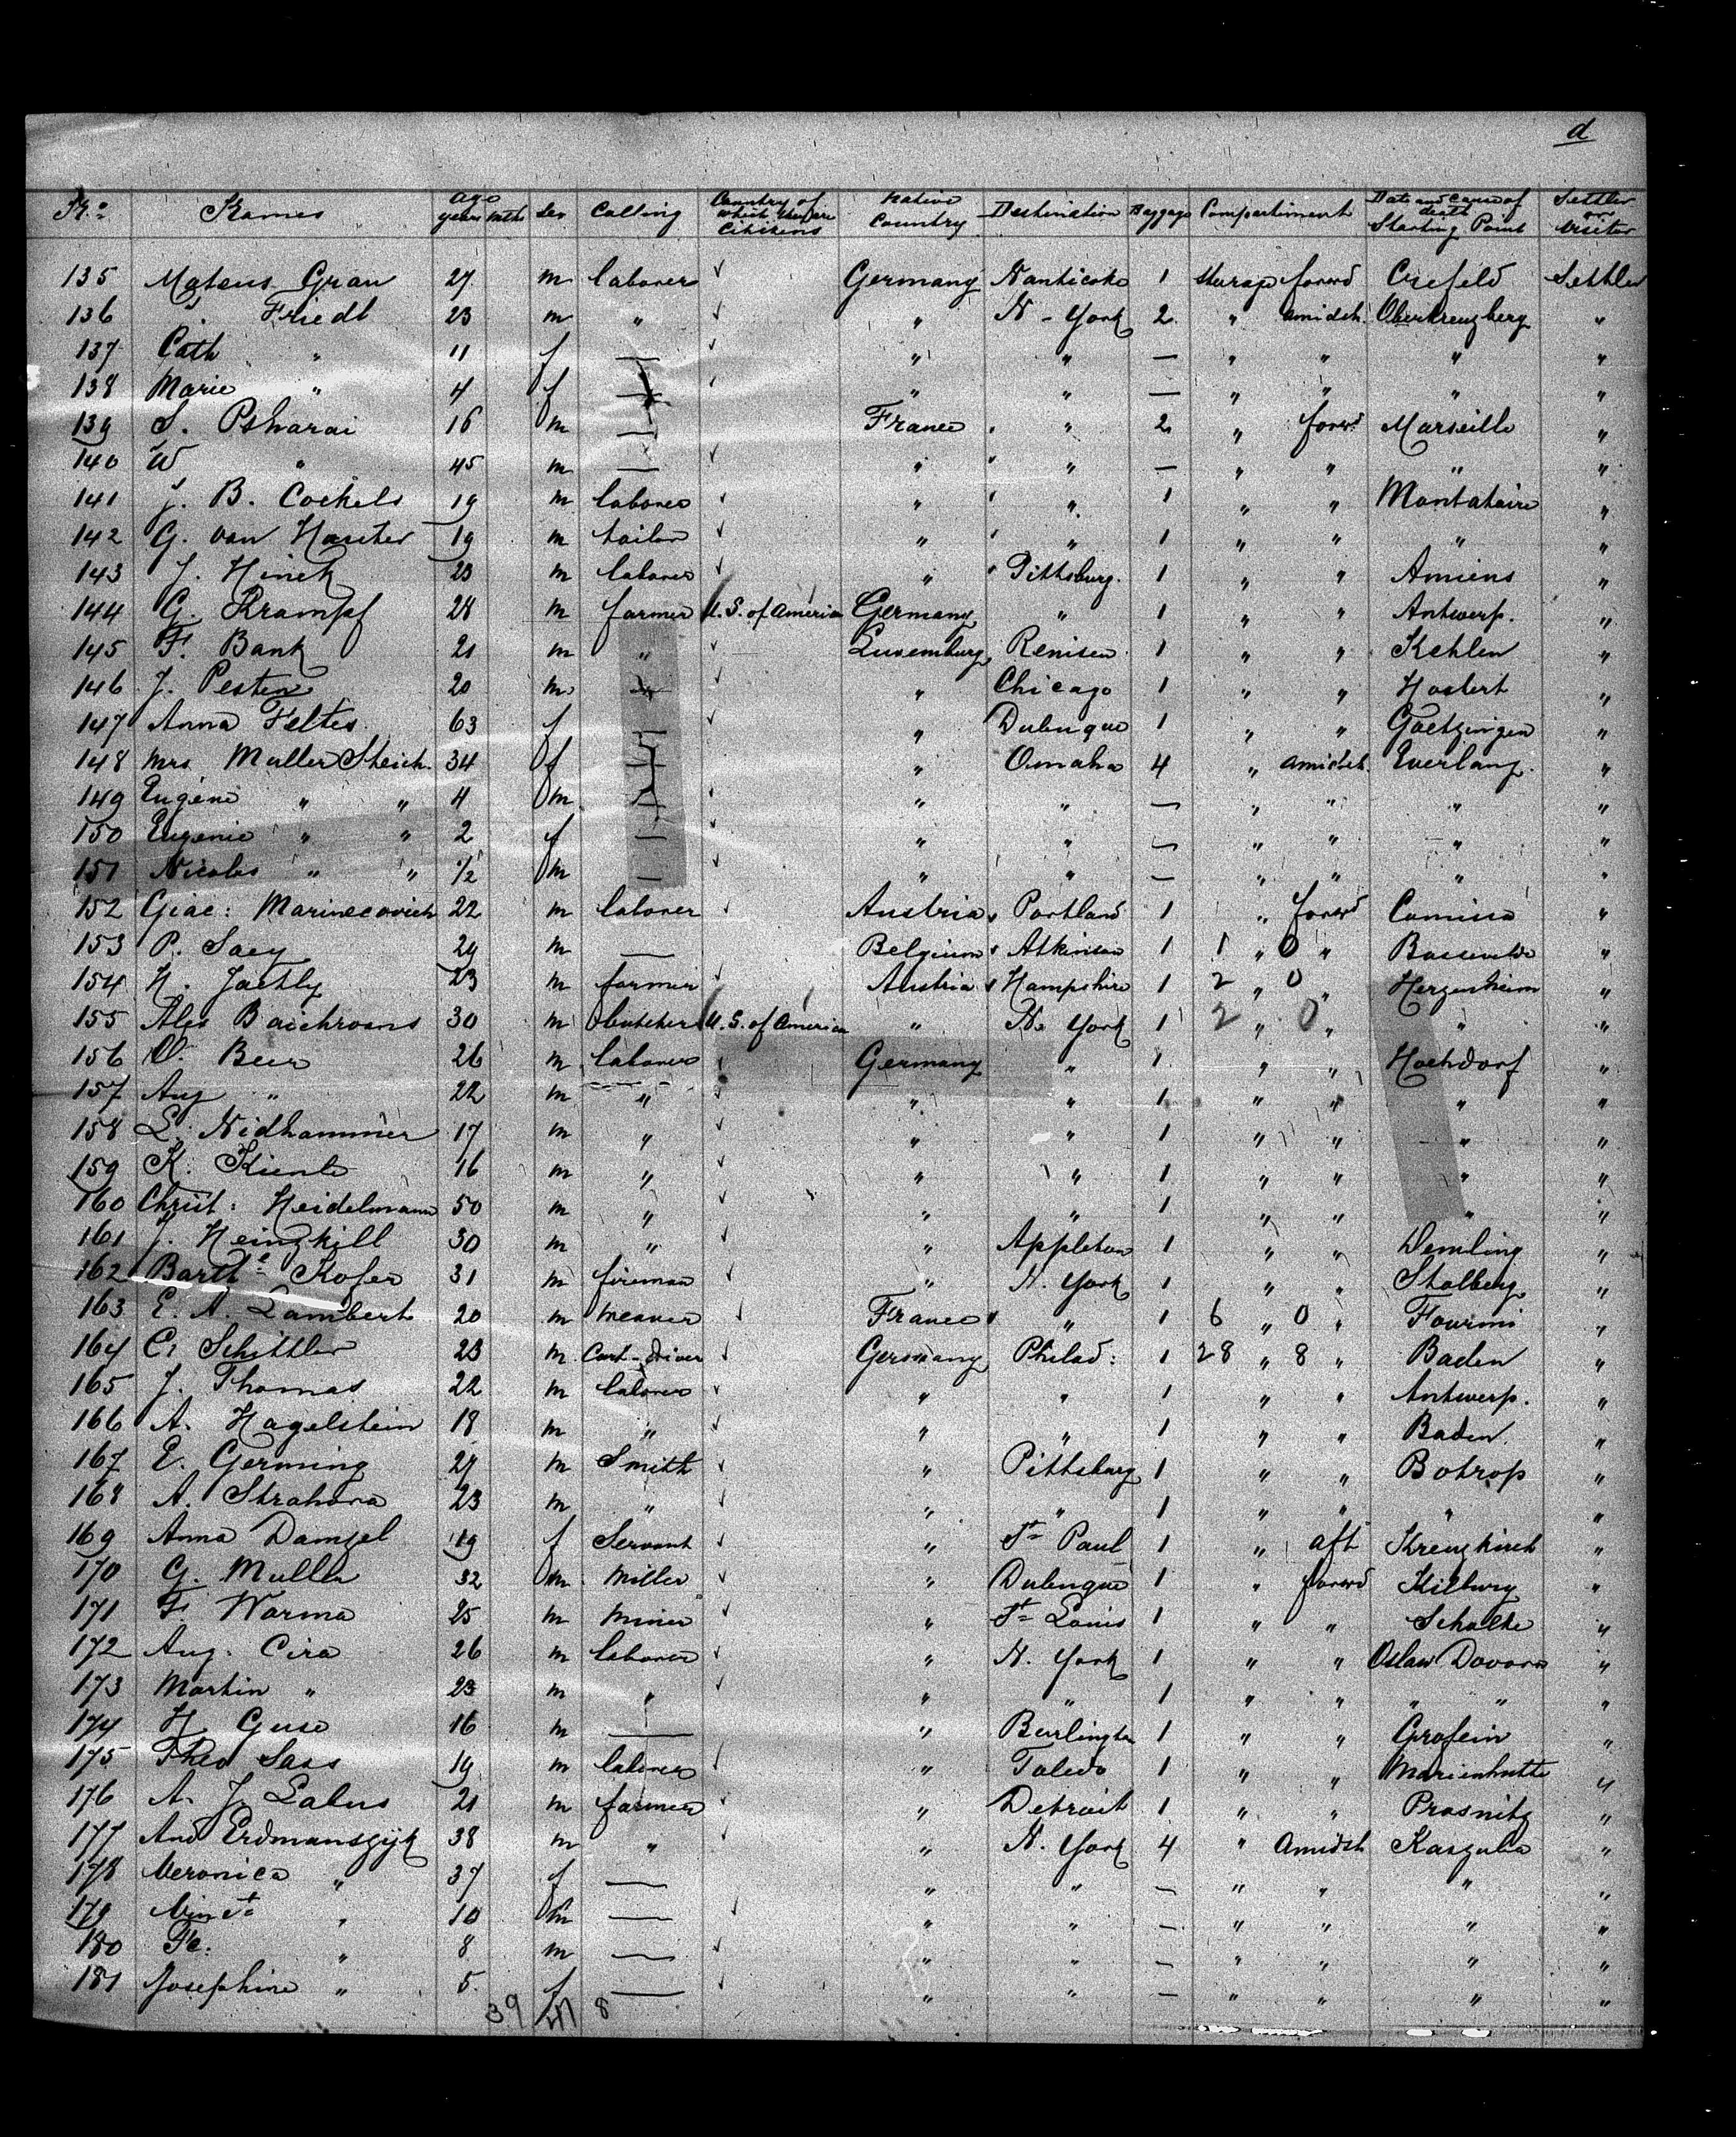 d
No. Names Age years mths Sex Calling Country of which they are Citizens Native Country Destination Baggage Compartiment Date and cause of death Starting Point Settler or Visitor
135 Mateus Gran 27 m laborer ✓ Germany Nanticoke 1 Sterage forwd Crefeld Settler
136 J. Friedl 23 m " ✓ " N-York 2 " amidsh. Oberkreuzberg "
137 Cath " 11 f — ✓ " " — " " " "
138 Marie " 4 f — ✓ " " — " " " "
139 S. Psharai 16 m — France " 2 " forwd Marseille "
140 W " 45 m — ✓ " " — " " " "
141 J. B. Cockels 19 m laborer ✓ " " 1 " " Montataire "
142 G. van Haecter 19 m tailor ✓ " " 1 " " " "
143 J. Hinek 23 m laborer ✓ " Pittsburg. 1 " " Amiens "
144 G. Krampf 28 m farmer U.S. of America Germany " 1 " " Antwerp. "
145 F. Bank 21 m " ✓ Luxemburg Remsen 1 " " Kehlen "
146 J. Pesten 20 m " ✓ " Chicago 1 " " Hostert "
147 Anna Feltes 63 f — ✓ " Dubuque 1 " " Goetzingen "
148 Mrs Muller Steich. 34 f — " Omaha 4 " amidsh. Everlang. "
149 Eugène " " 4 m — ✓ " " — " " " "
150 Eugenie " " 2 f — ✓ " " — " " " "
151 Nicolas " " 1/2 m — ✓ " " — " " " "
152 Giac: Marinecovich 22 m laborer ✓ Austria Portland 1 " forwd Comissa "
153 P. Saey 29 m — Belgium Atkinson 1 1 " 0 " Bassevelde "
154 N. Jaetly 23 m farmer ✓ Austria Hampshire 1 2 " 0 " Hergenheim "
155 Alex Baichroans 30 m butcher U.S. of America " N. York 1 2 " 0 " " "
156 O. Beer 26 m laborer ✓ Germany " 1 " " Hochdorf "
157 Aug " 22 m " ✓ " " 1 " " " "
158 L. Nidhammer 17 m " ✓ " " 1 " " " "
159 K. Kienle 16 m " ✓ " " 1 " " " "
160 Christ: Heidelmann 50 m " ✓ " " 1 " " " "
161 J. Heinzkill 30 m " ✓ " Appleton 1 " " Demling "
162 Barth. Kofer 31 m fireman ✓ " N. York 1 " " Stolberg "
163 E. A. Lambert 20 m weaver ✓ France " 1 6 " 0 " Fourmi "
164 C. Schittler 23 m Cart-driver ✓ Germany Philad: 1 28 " 8 " Baden "
165 J. Thomas 22 m laborer ✓ " " 1 " " Antwerp. "
166 A. Hagelstein 18 m " ✓ " " 1 " " Baden "
167 E. Germing 27 m Smith ✓ " Pittsburg 1 " " Botrop "
168 A. Strahova 23 m " ✓ " " 1 " " " "
169 Anna Damzel 19 f Servant ✓ " St Paul 1 " aft Kreuzkirch "
170 G. Muller 32 m Miller ✓ " Dubuque 1 " forwd Kilburg "
171 F. Warma 25 m Miner ✓ " St Louis 1 " " Schalke "
172 Aug. Cira 26 m laborer ✓ " N. York 1 " " Oslaw Davora "
173 Martin " 23 m " ✓ " " 1 " " " " "
174 H Guse 16 m — " Burlington 1 " " Grofein "
175 Theo Sass 19 m laborer ✓ " Toledo 1 " " Marienhutte "
176 A. J. Labus 21 m farmer ✓ " Detroit 1 " " Prosnitz "
177 And Erdmanszijk 38 m " ✓ " N. York 4 " Amidsh Kaszuba "
178 Veronica " 37 f — " " — " " " "
179 Vinct " 10 m — ✓ " " — " " " "
180 Fr: " 8 m — ✓ " " — " " " "
181 Josephine " 5 f — ✓ " " — " " " "
39 47 8